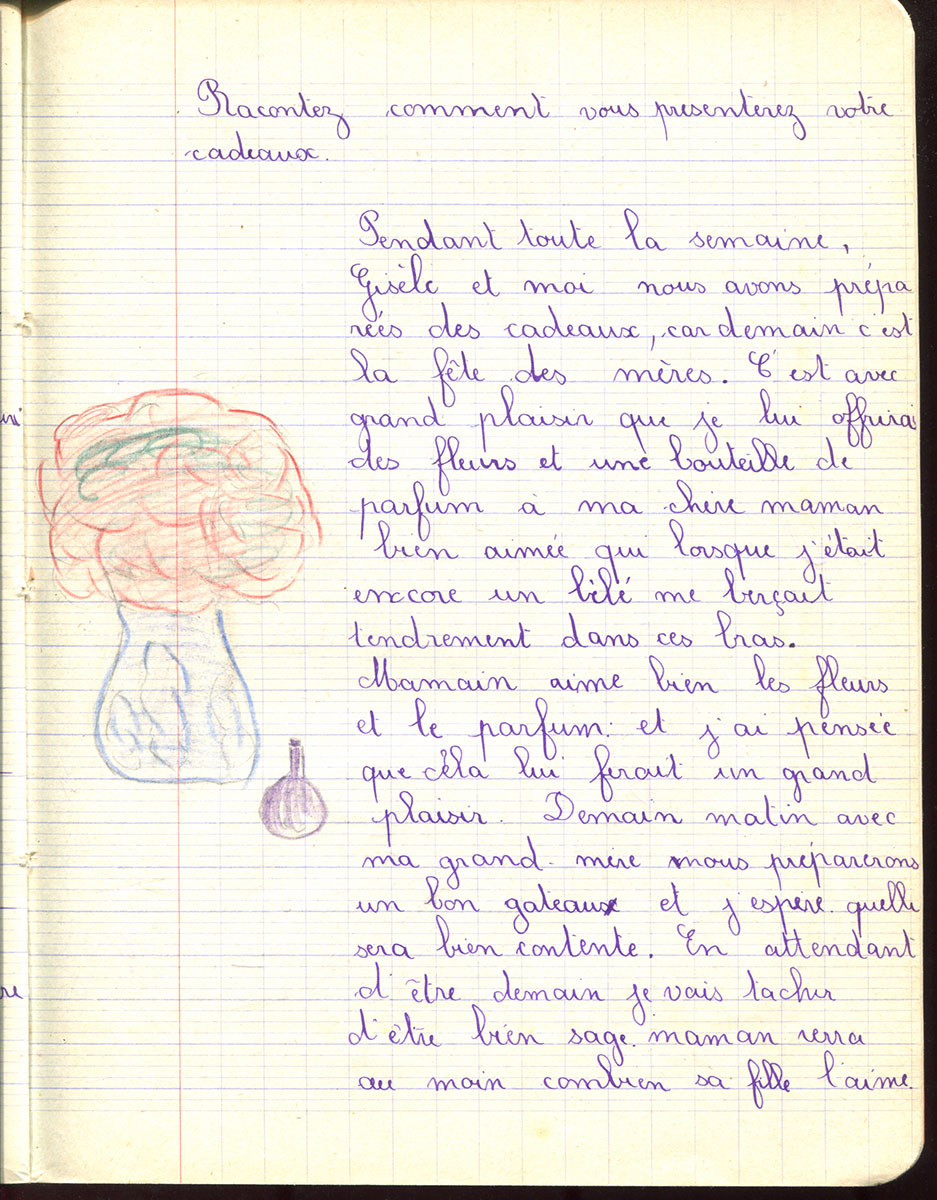 Racontez comment vous presenterez votre
cadeaux.
Pendant toute la semaine,
Gisèle et moi nous avons prépa
réés des cadeaux, car demain c'est
la fête des mères. C'est avec
grand plaisir que je lui offrirai
des fleurs et une bouteille de
parfum à ma chère maman
bien aimée qui lorsque j'était
encore un bébé me berçait
tendrement dans ces bras.
Mamain aime bien les fleurs
et le parfum. et j'ai pensée
que céla lui ferait un grand
plaisir. Demain matin avec
ma grand-mère nous préparerons
un bon gateaux et j'espère quelle
sera bien contente. En attendant
d'être demain je vais tacher
d'être bien sage. maman verra
au moin combien sa fille l'aime.